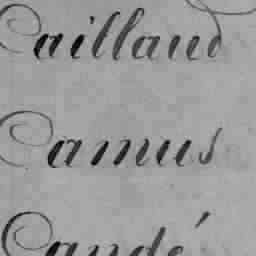 Caillaud
Camus
Candé